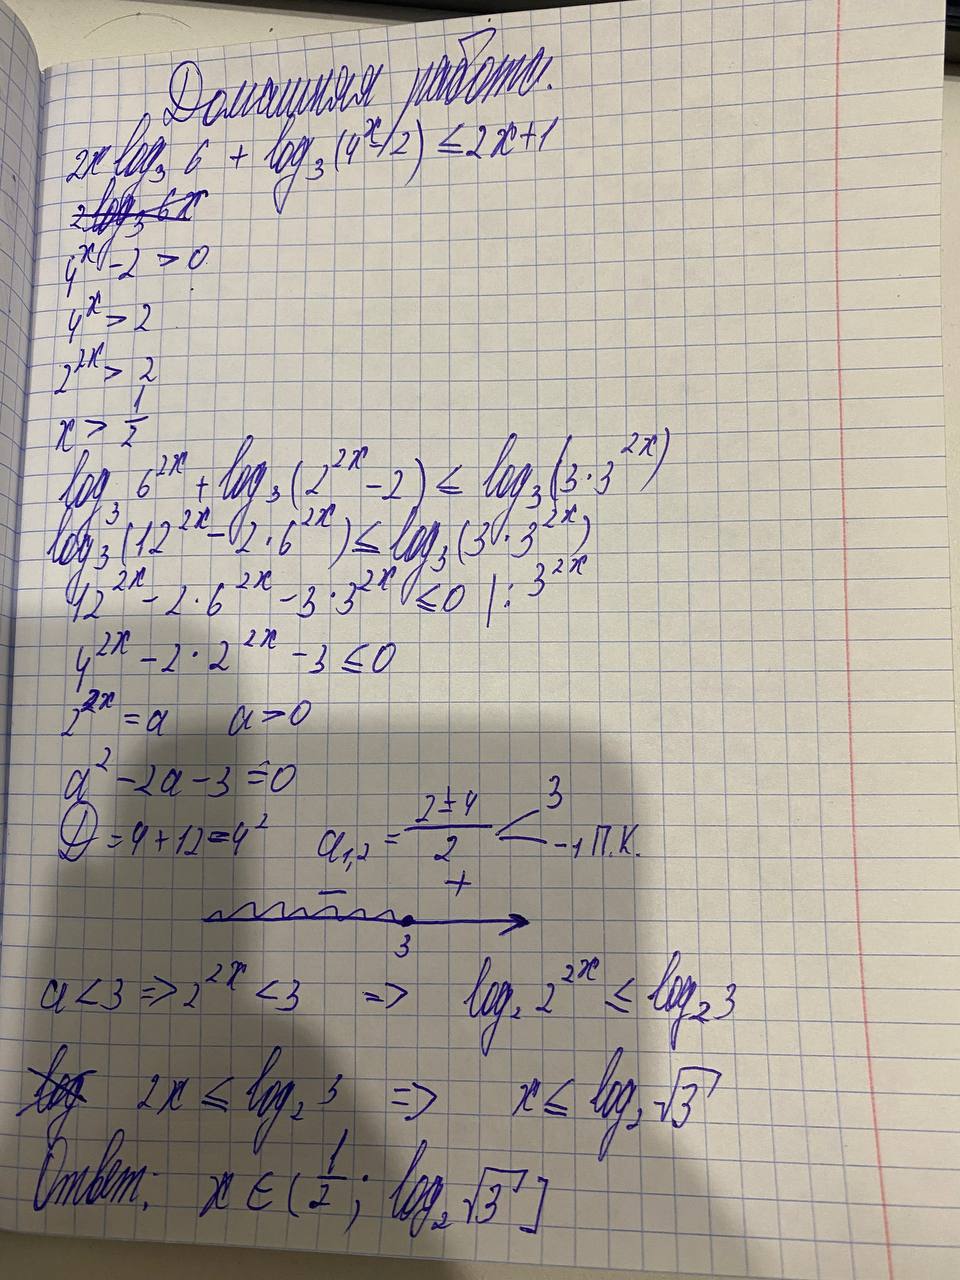 Домашняя работа.
2x log₃ 6 + log₃(4ˣ-2) ≤ 2x+1
2log₃ 6x
4ˣ - 2 > 0
4ˣ > 2
2²ˣ > 2
x > 1/2
log₃ 6²ˣ + log₃(2²ˣ - 2) ≤ log₃(3·3²ˣ)
log₃(12²ˣ - 2·6²ˣ) ≤ log₃(3·3²ˣ)
12²ˣ - 2·6²ˣ - 3·3²ˣ ≤ 0 | : 3²ˣ
4²ˣ - 2·2²ˣ - 3 ≤ 0
2²ˣ = a a > 0
a² - 2a - 3 = 0
D = 4 + 12 = 4² a₁,₂ = (2±4)/2 < 3 -1 П.К.
- +
3
a < 3 => 2²ˣ < 3 => log₂ 2²ˣ ≤ log₂ 3
log 2x ≤ log₂ 3 => x ≤ log₂ √3
Ответ: x ∈ (1/2; log₂ √3]